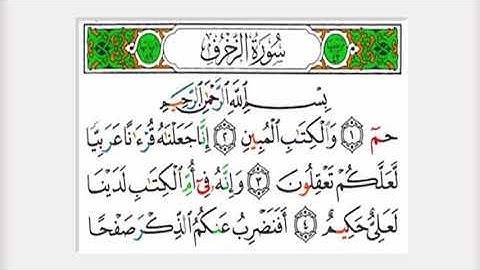 سُورَةُ الزُّخْرُفِ
بِسْمِ اللَّهِ الرَّحْمَٰنِ الرَّحِيمِ
حمٓ ﴿١﴾ وَالْكِتَابِ الْمُبِينِ ﴿٢﴾ إِنَّا جَعَلْنَٰهُ قُرْءَٰنًا عَرَبِيًّا
لَّعَلَّكُمْ تَعْقِلُونَ ﴿٣﴾ وَإِنَّهُۥ فِىٓ أُمِّ الْكِتَٰبِ لَدَيْنَا
لَعَلِىٌّ حَكِيمٌ ﴿٤﴾ أَفَنَضْرِبُ عَنكُمُ الذِّكْرَ صَفْحًا